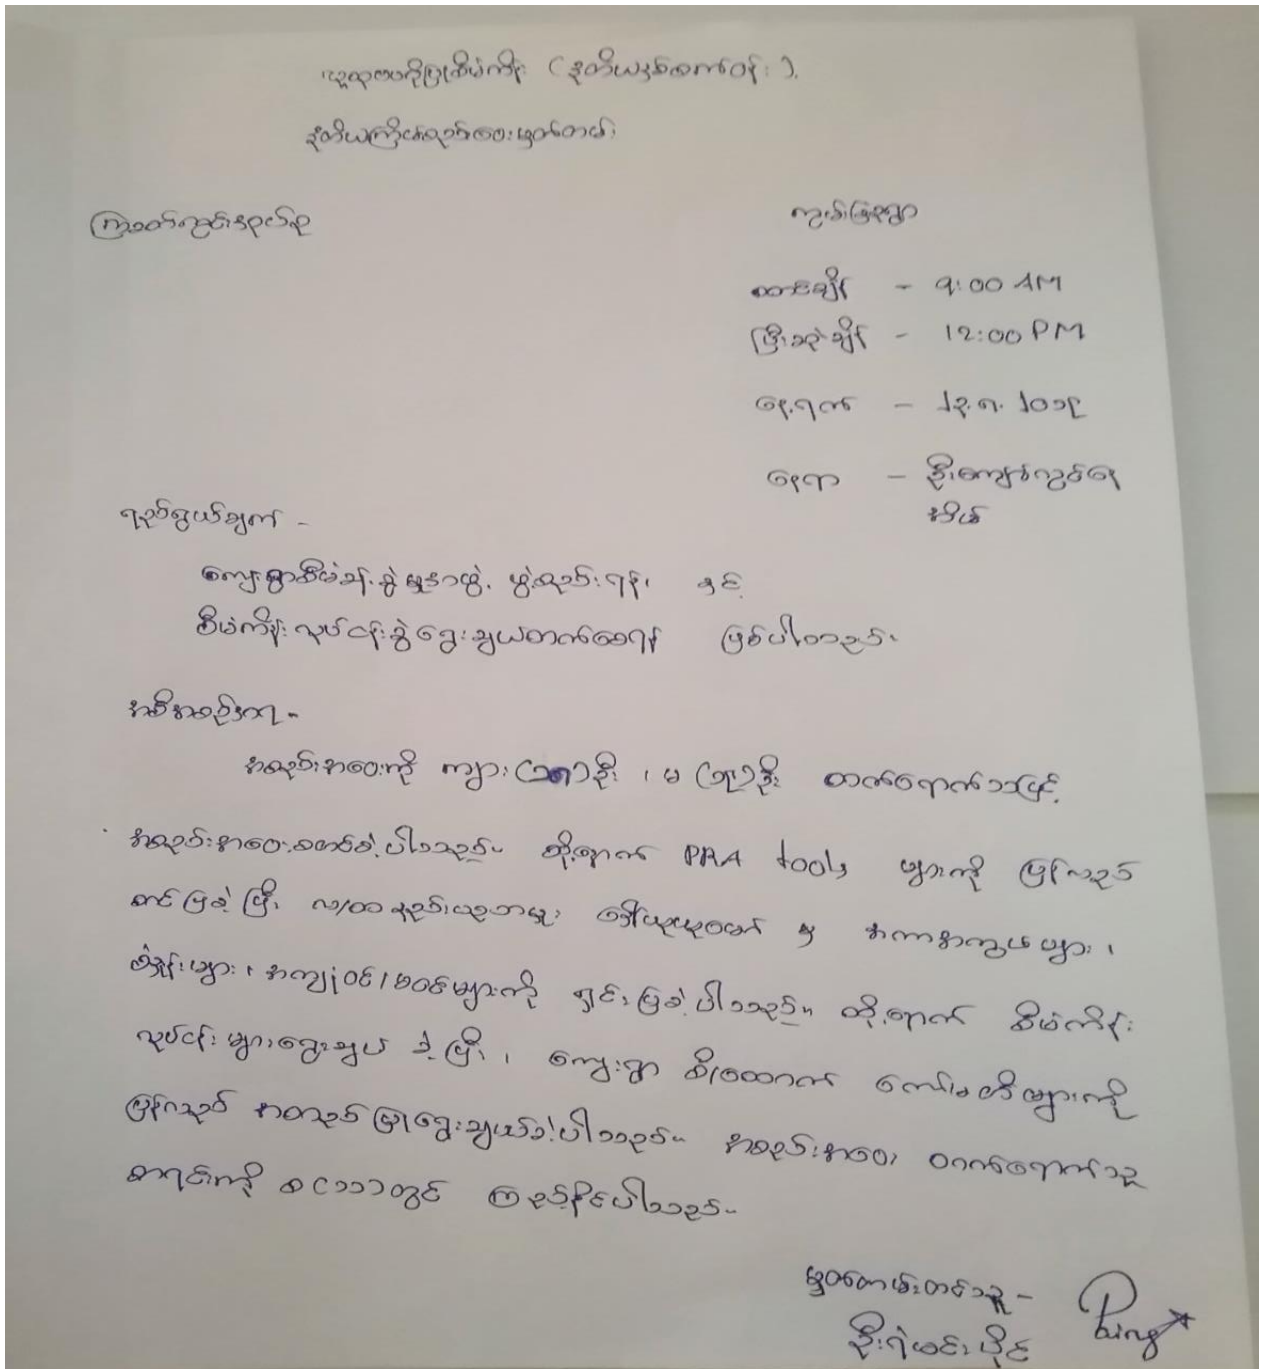 လူထုဗဟိုပြုစီမံကိန်း (ဒုတိယနှစ်စက်ဝန်း)
ဒုတိယအကြိမ်စည်းဝေးမှတ်တမ်း
ကြာခတ်ကွင်းအုပ်စု
ကျွန်းမြစ်ရွာ
စတင်ချိန် - 9:00 AM
ပြီးဆုံးချိန် - 12:00 PM
နေ့ရက် - ၂၃.၈.၂၀၁၉
နေရာ - ဦးကျော်လွင်၏
အိမ်
ရည်ရွယ်ချက် -
ကျေးရွာစီမံခန့်ခွဲမှုအဖွဲ့ ဖွဲ့စည်းရန်၊ နှင့်
စီမံကိန်းလုပ်ငန်းခွဲရွေးချယ်တတ်စေရန် ဖြစ်ပါသည်။
အစီအစဉ်အရ -
အစည်းအဝေးကို ကျား ဦး ၊ မ ဦး တက်ရောက်သဖြင့်
အစည်းအဝေးစတင်ခဲ့ပါသည်။ ထို့နောက် PRA tools များကို ပြန်လည်
တင်ပြခဲ့ပြီး လ/ထ နည်းပညာမှူး ဒေါ်ယုယုမော် မှ အကာအကွယ်များ ၊
စံနှုန်းများ ၊ အကျုံးဝင်/မဝင်များကို ရှင်းပြခဲ့ပါသည်။ ထို့နောက် စီမံကိန်း
လုပ်ငန်းများရွေးချယ် ခဲ့ပြီး ၊ ကျေးရွာ စီ/ထောက် ကော်မတီများကို
ပြန်လည် အတည်ပြုရွေးချယ်ခဲ့ပါသည်။ အစည်းအဝေး တက်ရောက်သူ
စာရင်းကို တွင် ကြည့်နိုင်ပါသည်။
မှတ်တမ်းတင်သူ -
ဦးရဲမင်းပိုင်
Paing